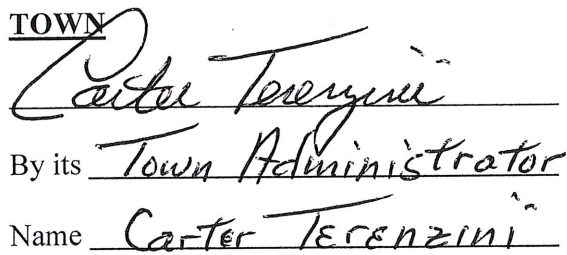 TOWN
Carter Terenzini
By its Town Administrator
Name Carter Terenzini